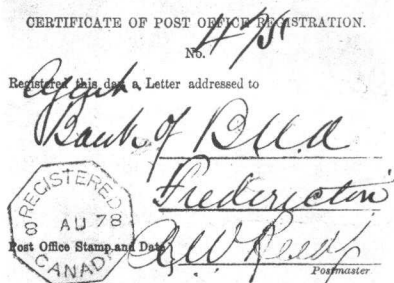 CERTIFICATE OF POST OFFICE REGISTRATION.
No.
Registered this day a Letter addressed to
Agent
Bank of B N A
Fredericton
REGISTERED
8 AU 78
CANADA
Post Office Stamp and Date
Postmaster